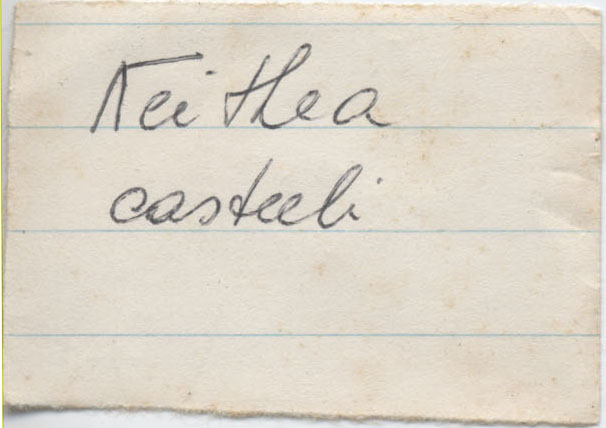 Neithea
casteeli